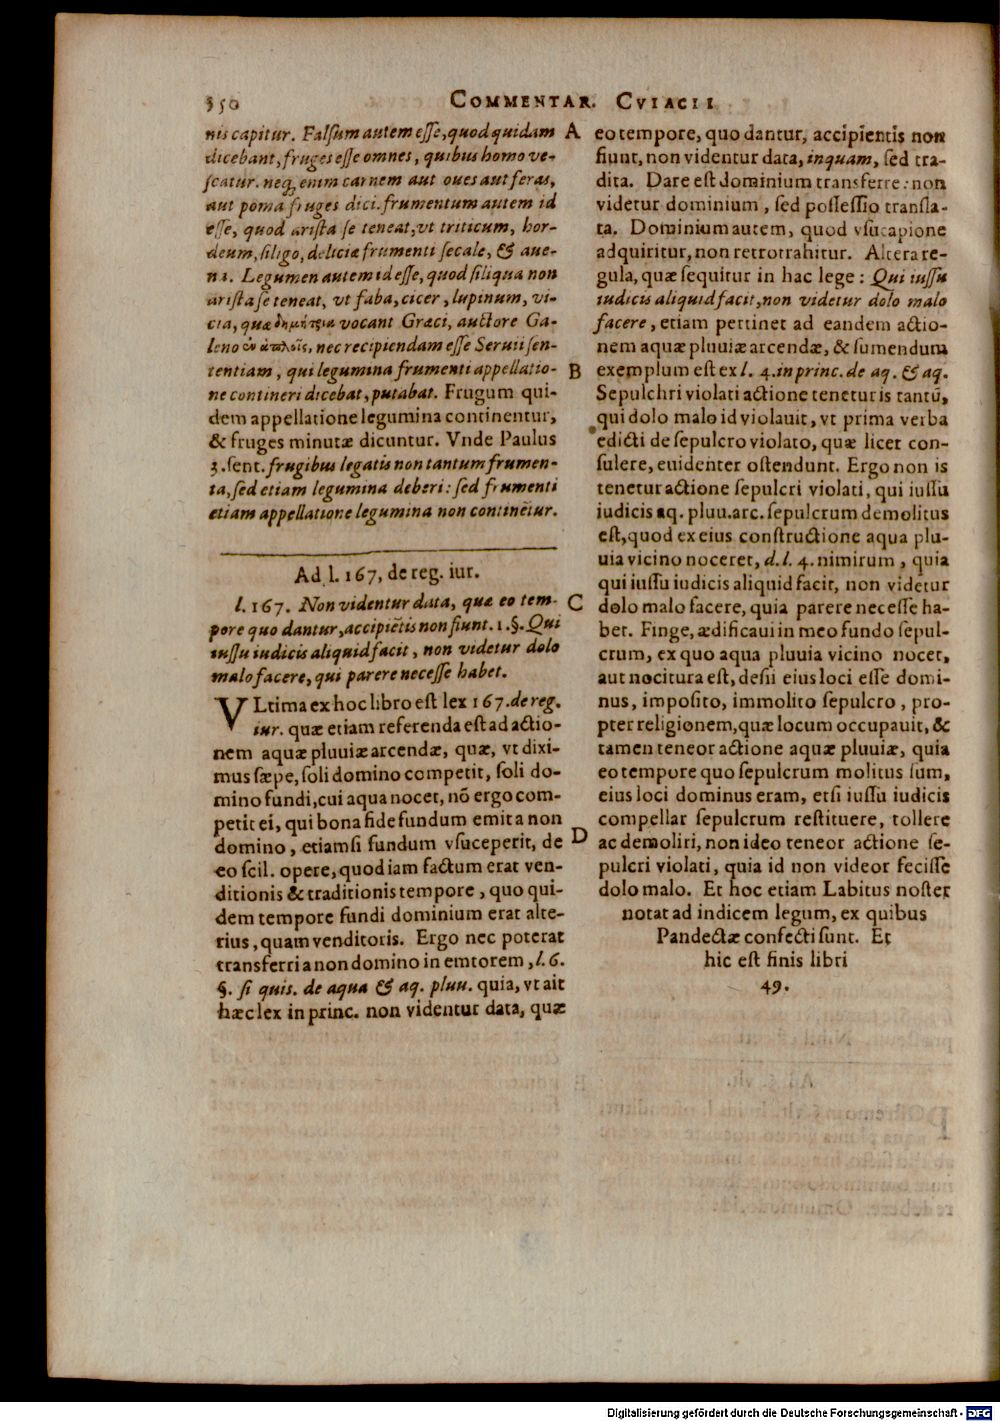 350
COMMENTAR. CVIACII
nis capitur. Falsum autem esse, quod quidam
dicebant, fruges esse omnes, quibus homo ve-
scatur. neq; enim carnem aut oues aut feras,
aut poma fruges dici. frumentum autem id
esse, quod arista se teneat, vt triticum, hor-
deum, siligo, deliciæ frumenti secale, & aue-
na. Legumen autem id esse, quod siliqua non
arista se teneat, vt faba, cicer, lupinum, vi-
cia, quæ δημήτρια vocant Græci, auctore Ga-
leno nec recipiendam esse Seruii sen-
tentiam, qui legumina frumenti appellatio-
ne contineri dicebat, putabat. Frugum qui-
dem appellatione legumina continentur,
& fruges minutæ dicuntur. Vnde Paulus
3. sent. frugibus legatis non tantum frumen-
ta, sed etiam legumina deberi: sed frumenti
etiam appellatione legumina non continetur.
Ad l. 167, de reg. iur.
l. 167. Non videntur data, quæ eo tem-
pore quo dantur, accipiētis non fiunt. 1. §. Qui
iussu iudicis aliquid facit, non videtur dolo
malo facere, qui parere necesse habet.
VLtima ex hoc libro est lex 167. de reg.
iur. quæ etiam referenda est ad actio-
nem aquæ pluuiæ arcendæ, quæ, vt dixi-
mus sæpe, soli domino competit, soli do-
mino fundi, cui aqua nocet, nō ergo com-
petit ei, qui bona fide fundum emit a non
domino, etiamsi fundum vsuceperit, de
eo scil. opere, quod iam factum erat ven-
ditionis & traditionis tempore, quo qui-
dem tempore fundi dominium erat alte-
rius, quam venditoris. Ergo nec poterat
transferri a non domino in emtorem, l. 6.
§. si quis. de aqua & aq. pluu. quia, vt ait
hæc lex in princ. non videntur data, quæ
A
B
C
D
eo tempore, quo dantur, accipientis non
fiunt, non videntur data, inquam, sed tra-
dita. Dare est dominium transferre: non
videtur dominium, sed possessio transla-
ta. Dominium autem, quod vsucapione
adquiritur, non retrotrahitur. Altera re-
gula, quæ sequitur in hac lege: Qui iussu
iudicis aliquid facit, non videtur dolo malo
facere, etiam pertinet ad eandem actio-
nem aquæ pluuiæ arcendæ, & sumendum
exemplum est ex l. 4. in princ. de aq. & aq.
Sepulchri violati actione tenetur is tantū,
qui dolo malo id violauit, vt prima verba
edicti de sepulcro violato, quæ licet con-
sulere, euidenter ostendunt. Ergo non is
tenetur actione sepulcri violati, qui iussu
iudicis aq. pluu. arc. sepulcrum demolitus
est, quod ex eius constructione aqua plu-
uia vicino noceret, d. l. 4. nimirum, quia
qui iussu iudicis aliquid facit, non videtur
dolo malo facere, quia parere necesse ha-
bet. Finge, ædificaui in meo fundo sepul-
crum, ex quo aqua pluuia vicino nocet,
aut nocitura est, desii eius loci esse domi-
nus, imposito, immolito sepulcro, pro-
pter religionem, quæ locum occupauit, &
tamen teneor actione aquæ pluuiæ, quia
eo tempore quo sepulcrum molitus sum,
eius loci dominus eram, etsi iussu iudicis
compellar sepulcrum restituere, tollere
ac demoliri, non ideo teneor actione se-
pulcri violati, quia id non videor fecisse
dolo malo. Et hoc etiam Labitus noster
notat ad indicem legum, ex quibus
Pandectæ confecti sunt. Et
hic est finis libri
49.
Digitalisierung gefördert durch die Deutsche Forschungsgemeinschaft - DFG